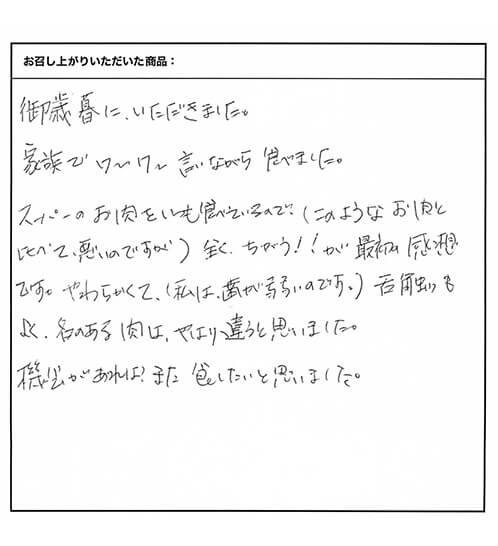 お召し上がりいただいた商品：
御歳暮に、いただきました。
家族で ワーワー 言いながら 食べました。
スーパーの お肉を いつも 食べているので、(このような お肉と
比べて、悪いのですが) 全く、ちがう！！が 最初の 感想
です。やわらかくて、(私は、歯が弱いのです。) 舌触りも
よく、名のある 肉は、やはり 違うと 思いました。
機会があれば、また 食したいと思いました。